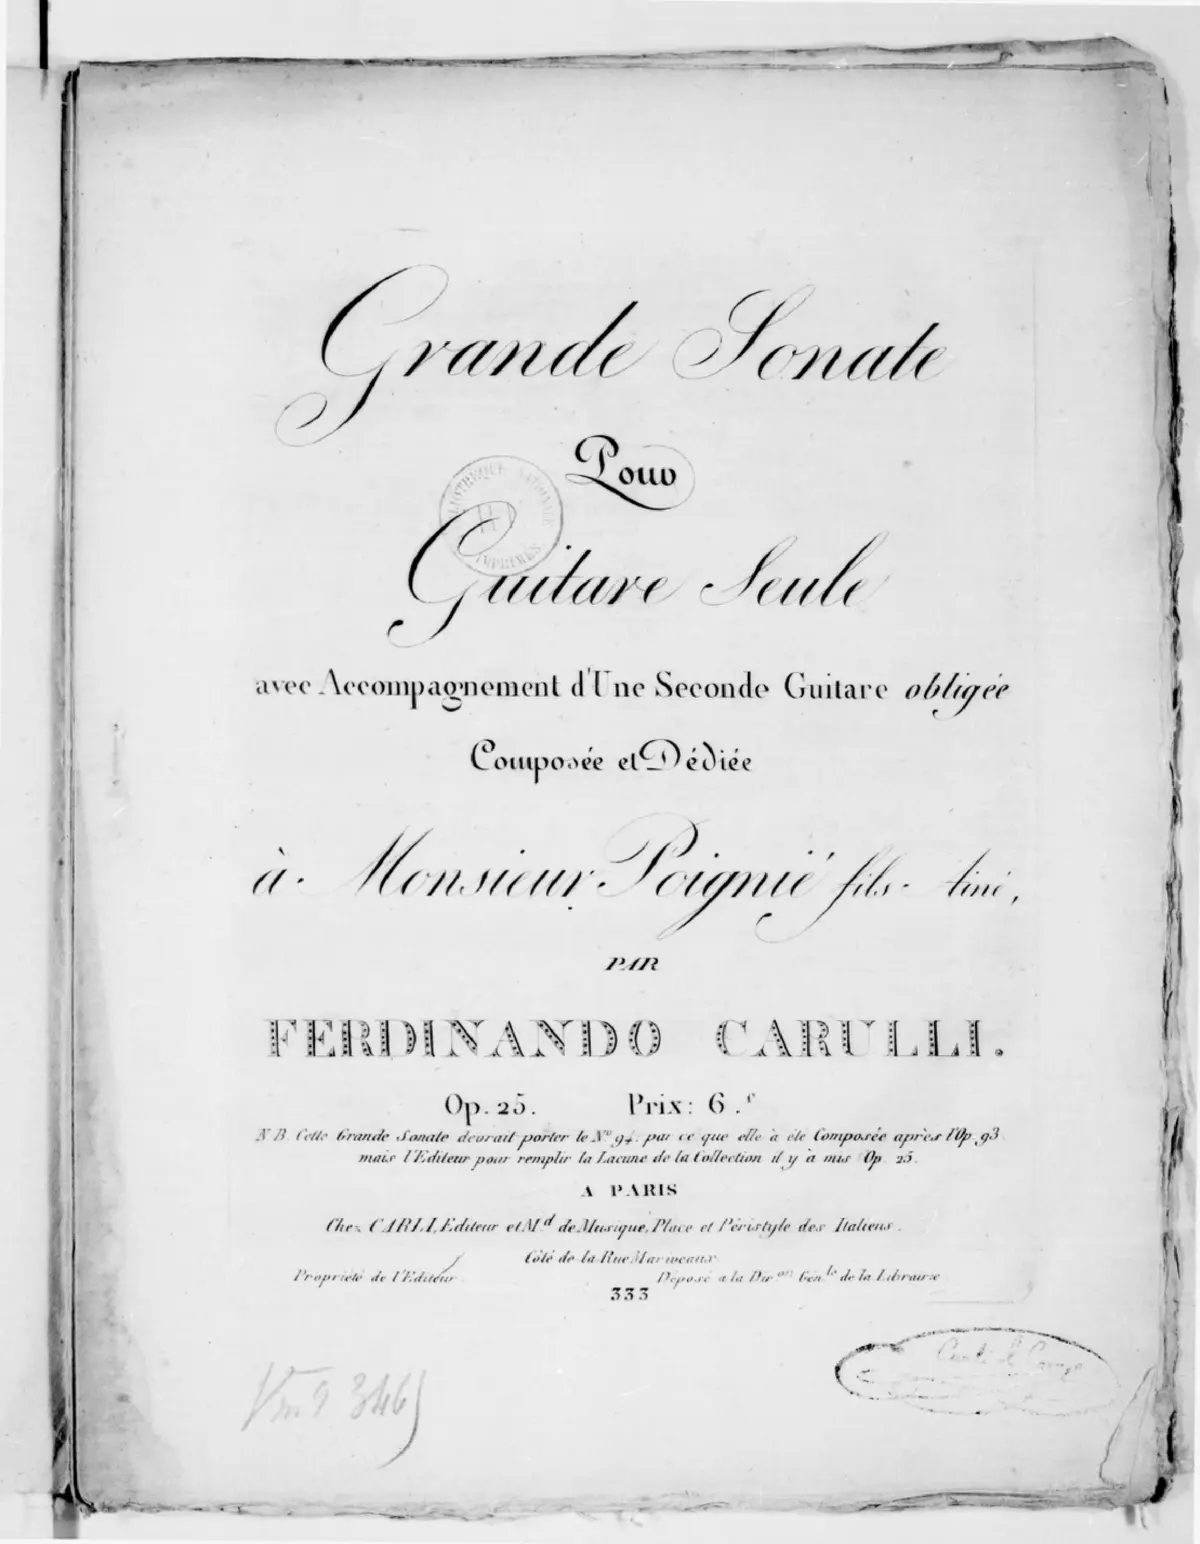 Grande Sonate
Pour
BIBLIOTHEQUE NATIONALE
IMPRIMÉS
Guitare Seule
avec Accompagnement d'Une Seconde Guitare obligée
Composée et Dédiée
à Monsieur Poignié fils
PAR
FERDINANDO CARULLI.
Op. 25. Prix: 6.f
N.B. Cette Grande Sonate devrait porter le No 94. par ce que elle à été Composée après l'Op. 93.
mais l'Editeur pour remplir la Lacune de la Collection il y à mis Op. 25.
A PARIS
Chez CARLI, Editeur et Md de Musique, Place et Péristyle des Italiens.
Côté de la Rue Marivaux.
Propriété de l'Editeur. Déposé a la Dir.on Gén.le de la Librairie
333
Vm9 3465